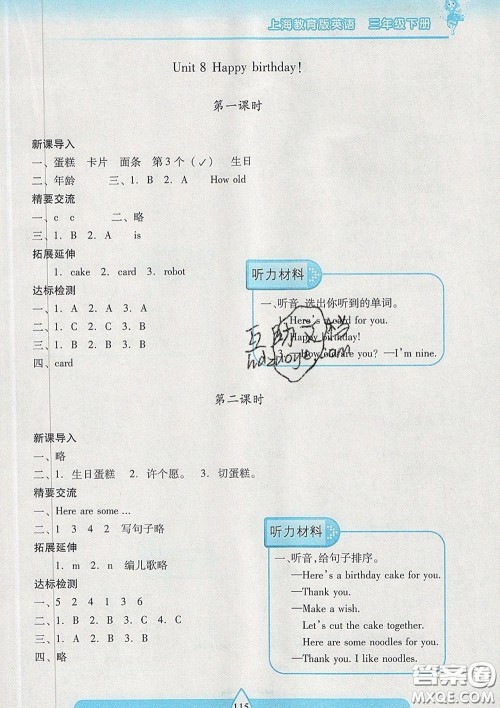 上海教育版英语 三年级下册
Unit 8 Happy birthday!
第一课时
新课导入
一、蛋糕 卡片 面条 第3个(✓) 生日
二、年龄 三、1. B 2. A How old
精要交流
一、c c 二、略
三、1. B 2. A is
拓展延伸
1. cake 2. card 3. robot
达标检测
一、1. A 2. A 3. A
二、1. B 2. A 3. B
三、1. B 2. B 3. B
四、card
听力材料
一、听音,选出你听到的单词。
1. Here's a card for you.
Happy birthday!
3. —How old are you? —I'm nine.
第二课时
新课导入
一、略
二、1. 生日蛋糕 2. 许个愿。 3. 切蛋糕。
精要交流
一、Here are some …
二、1 3 4 2 写句子略
拓展延伸
1. m 2. n 编儿歌略
达标检测
一、5 2 4 1 3 6
二、1. B 2. B 3. C 4. C
三、1. B 2. A 3. B
四、略
听力材料
一、听音,给句子排序。
—Here's a birthday cake for you.
—Thank you.
—Make a wish.
Let's cut the cake together.
Here are some noodles for you.
—Thank you. I like noodles.
115
答案圈
MXQE.COM